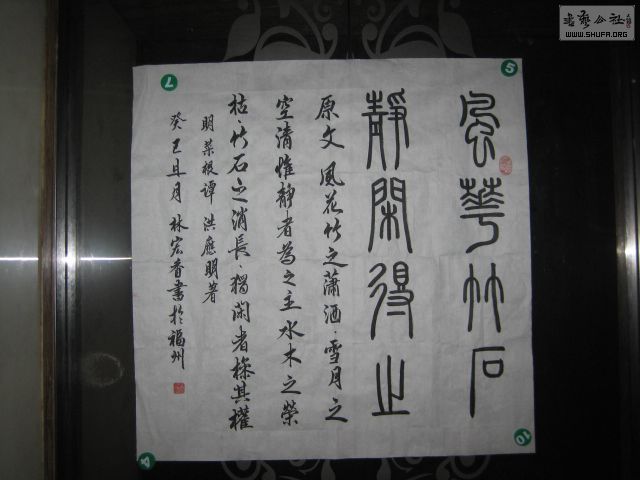 風華竹石
靜閑得之
原文 風花竹之瀟洒、雪月之
空清惟靜者為之主水木之榮
枯、竹石之消長、獨閑者操其權
明菜根譚 洪應明著
癸巳且月 林宏香書於福州
书艺公社
WWW.SHUFA.ORG
5
7
10
4